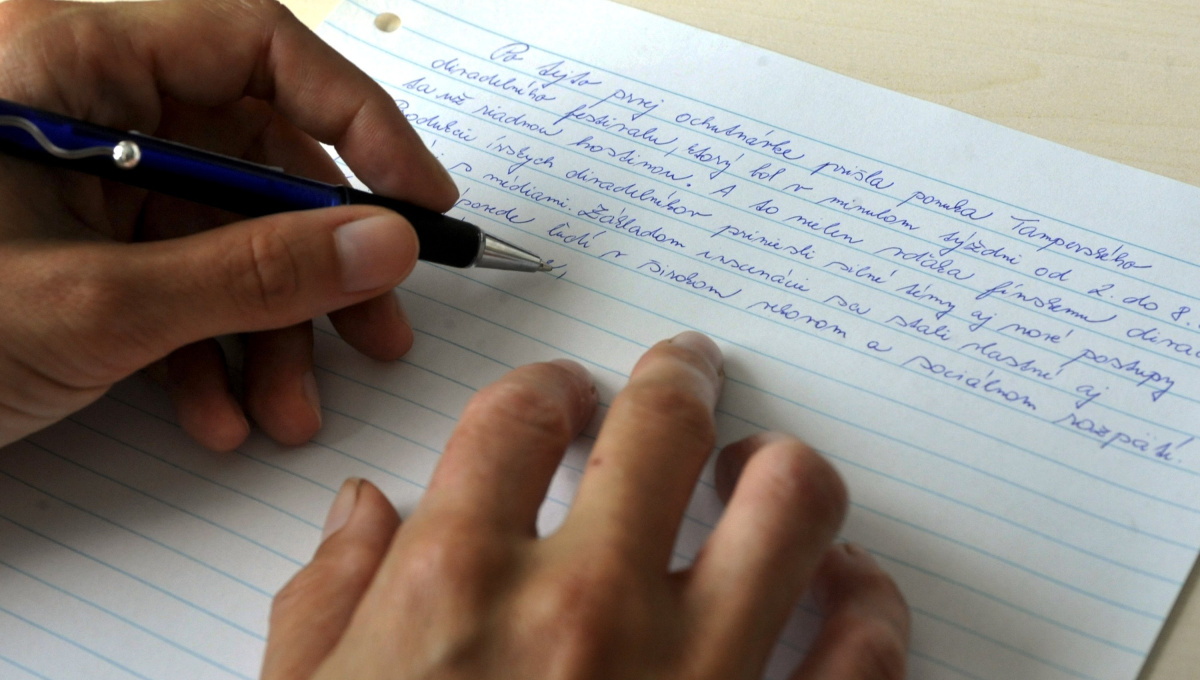 Po tejto prvej ochutnávke prišla ponuka Tamperského
divadelného festivalu, ktorý bol v minulom týždni od 2. do 8.
sa už riadnou hostinou. A to nielen vďaka fínskemu diva
Produkcie írskych divadelníkov priniesli silné témy aj nové postupy
s médiami. Základom inscenácií sa stali vlastné aj
ľudí v širokom vekovom a sociálnom rozpätí.